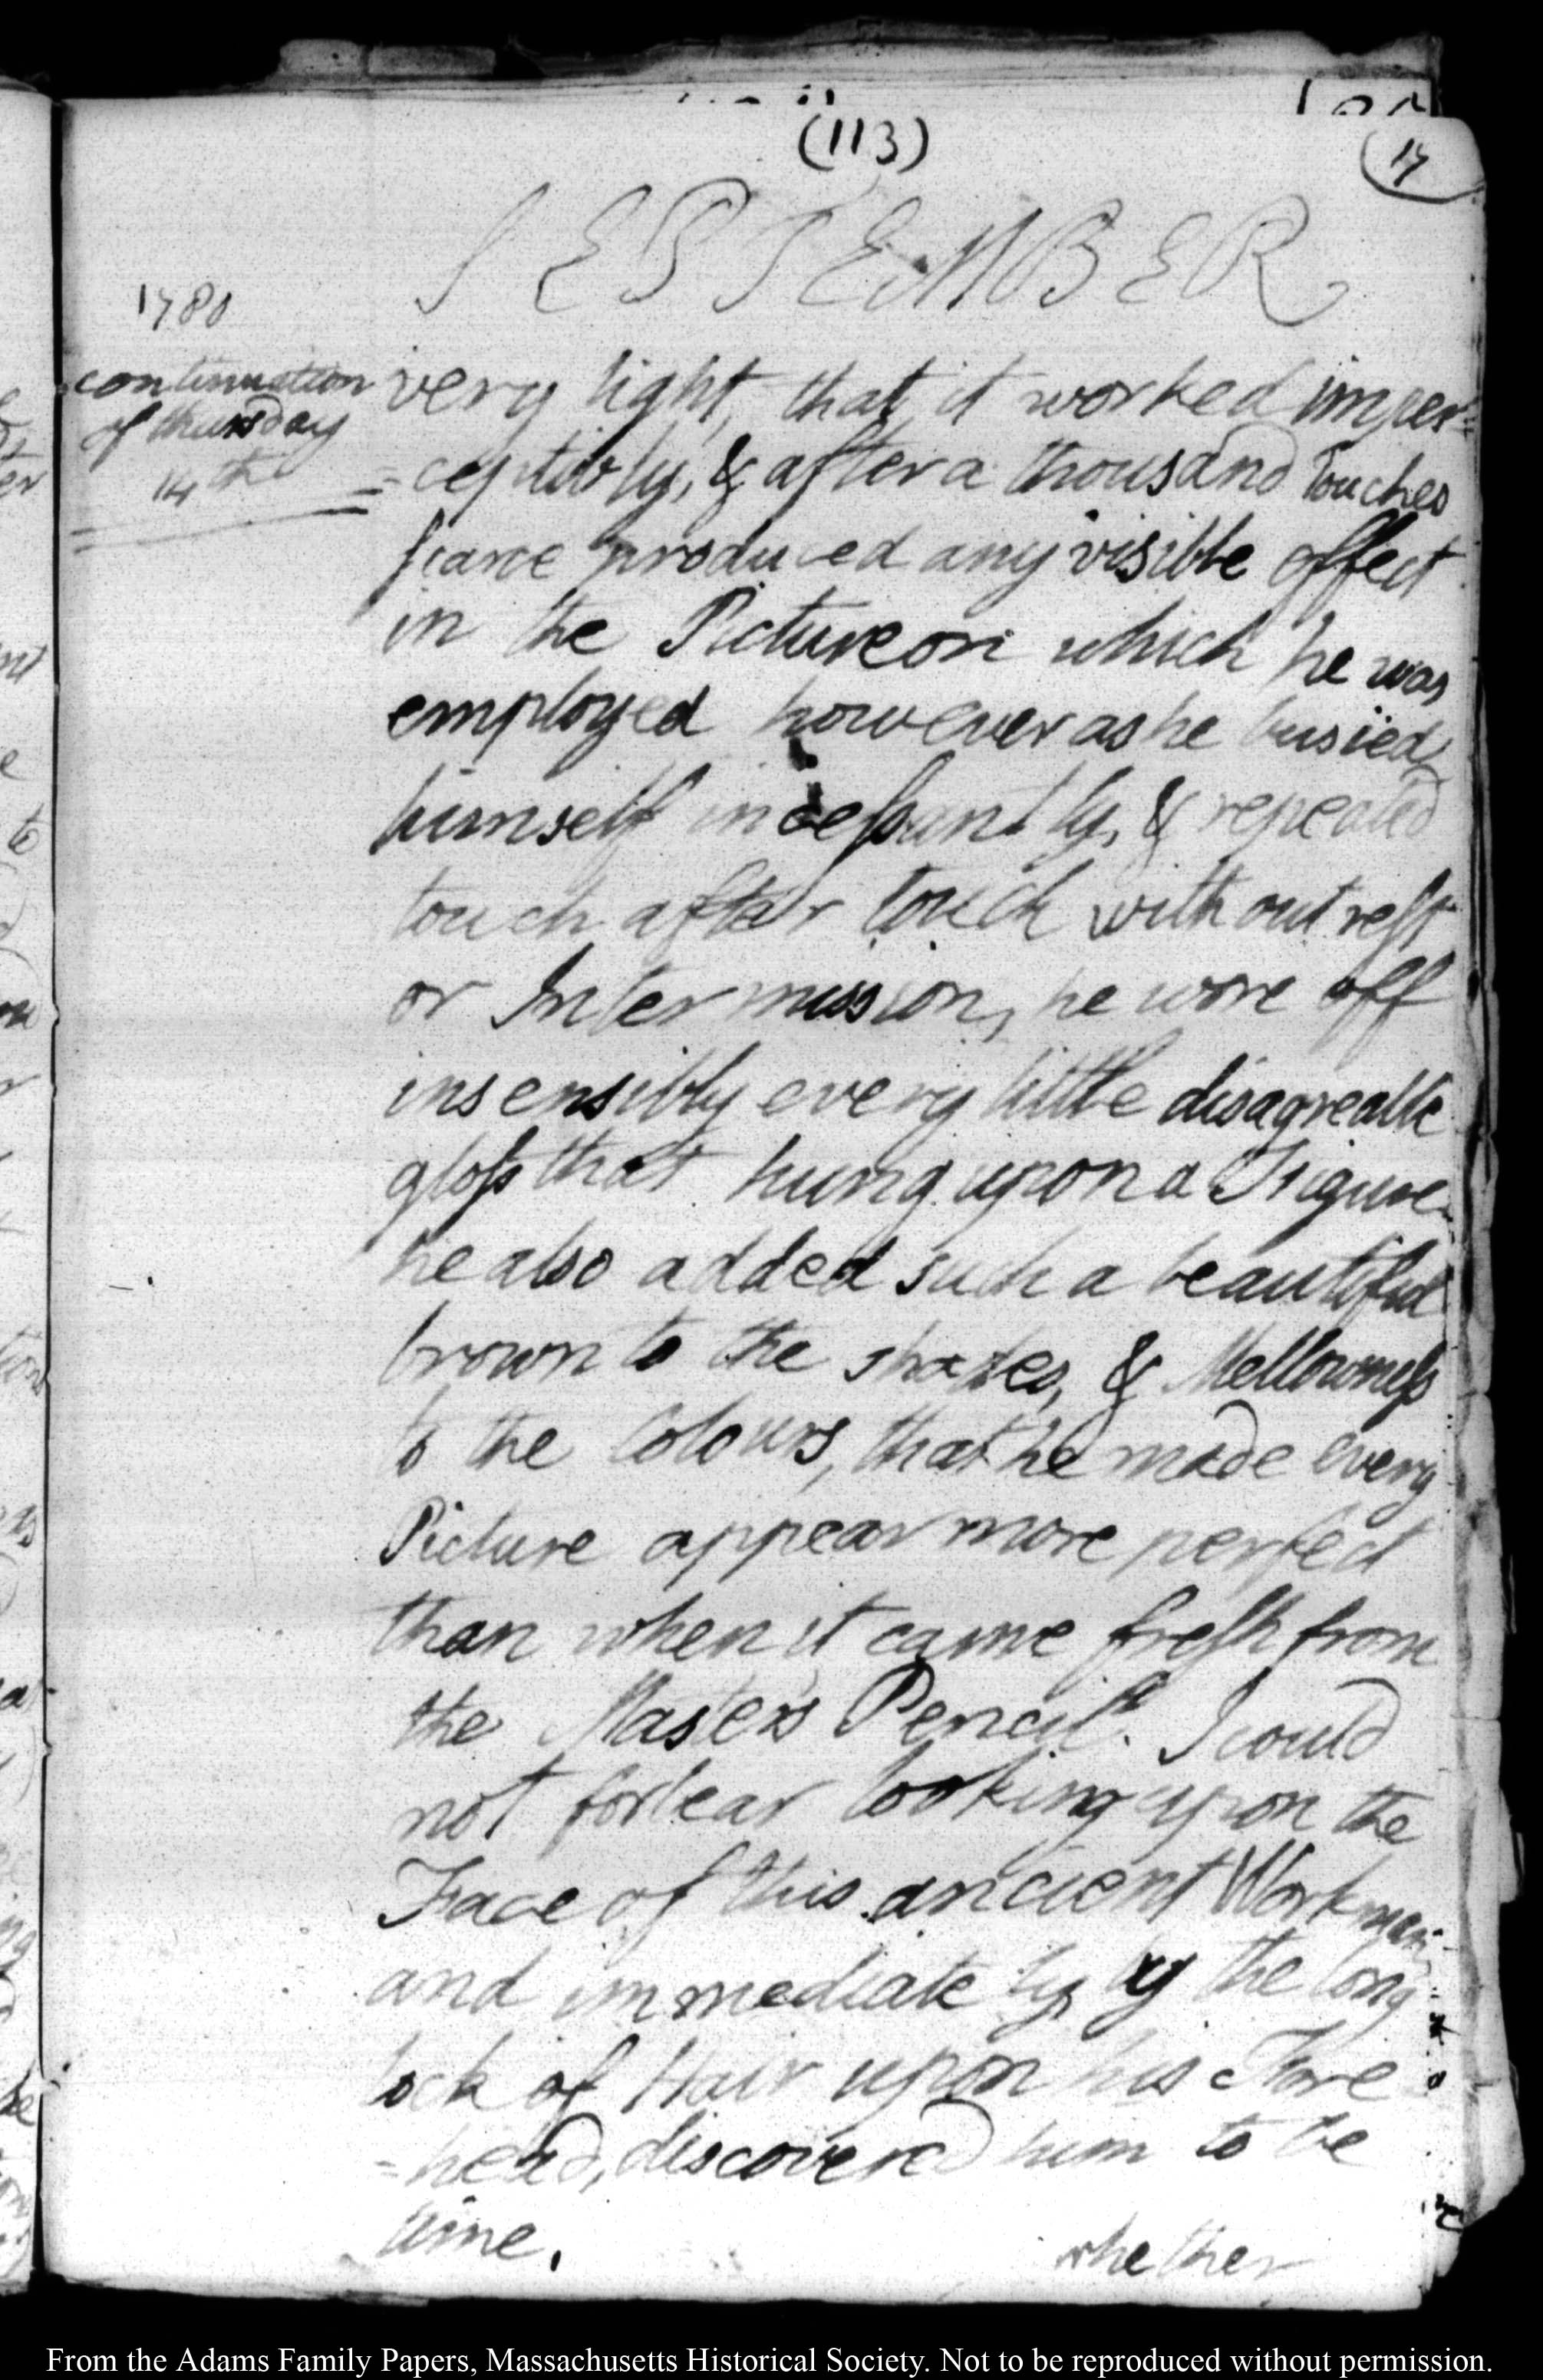 (113)
17
SEPTEMBER
1780
continuation
of thursday
14th
very light, that it worked imper=
=ceptibly, & after a thousand Touches
scarce produced any visible effect
in the Picture on which he was
employed however as he busied
himself incessantly, & repeated
touch after touch without rest
or Intermission, he wore off
insensibly every little disagreable
gloss that hung upon a Figure
he also added such a beautiful
brown to the shades, & Mellowness
to the Colours, that he made every
Picture appear more perfect
than when it came fresh from
the Masters Pencil. I could
not forbear looking upon the
Face of this ancient Workman
and immediately, by the long
lock of Hair upon his Fore
=head, discovered him to be
time.
whether
From the Adams Family Papers, Massachusetts Historical Society. Not to be reproduced without permission.